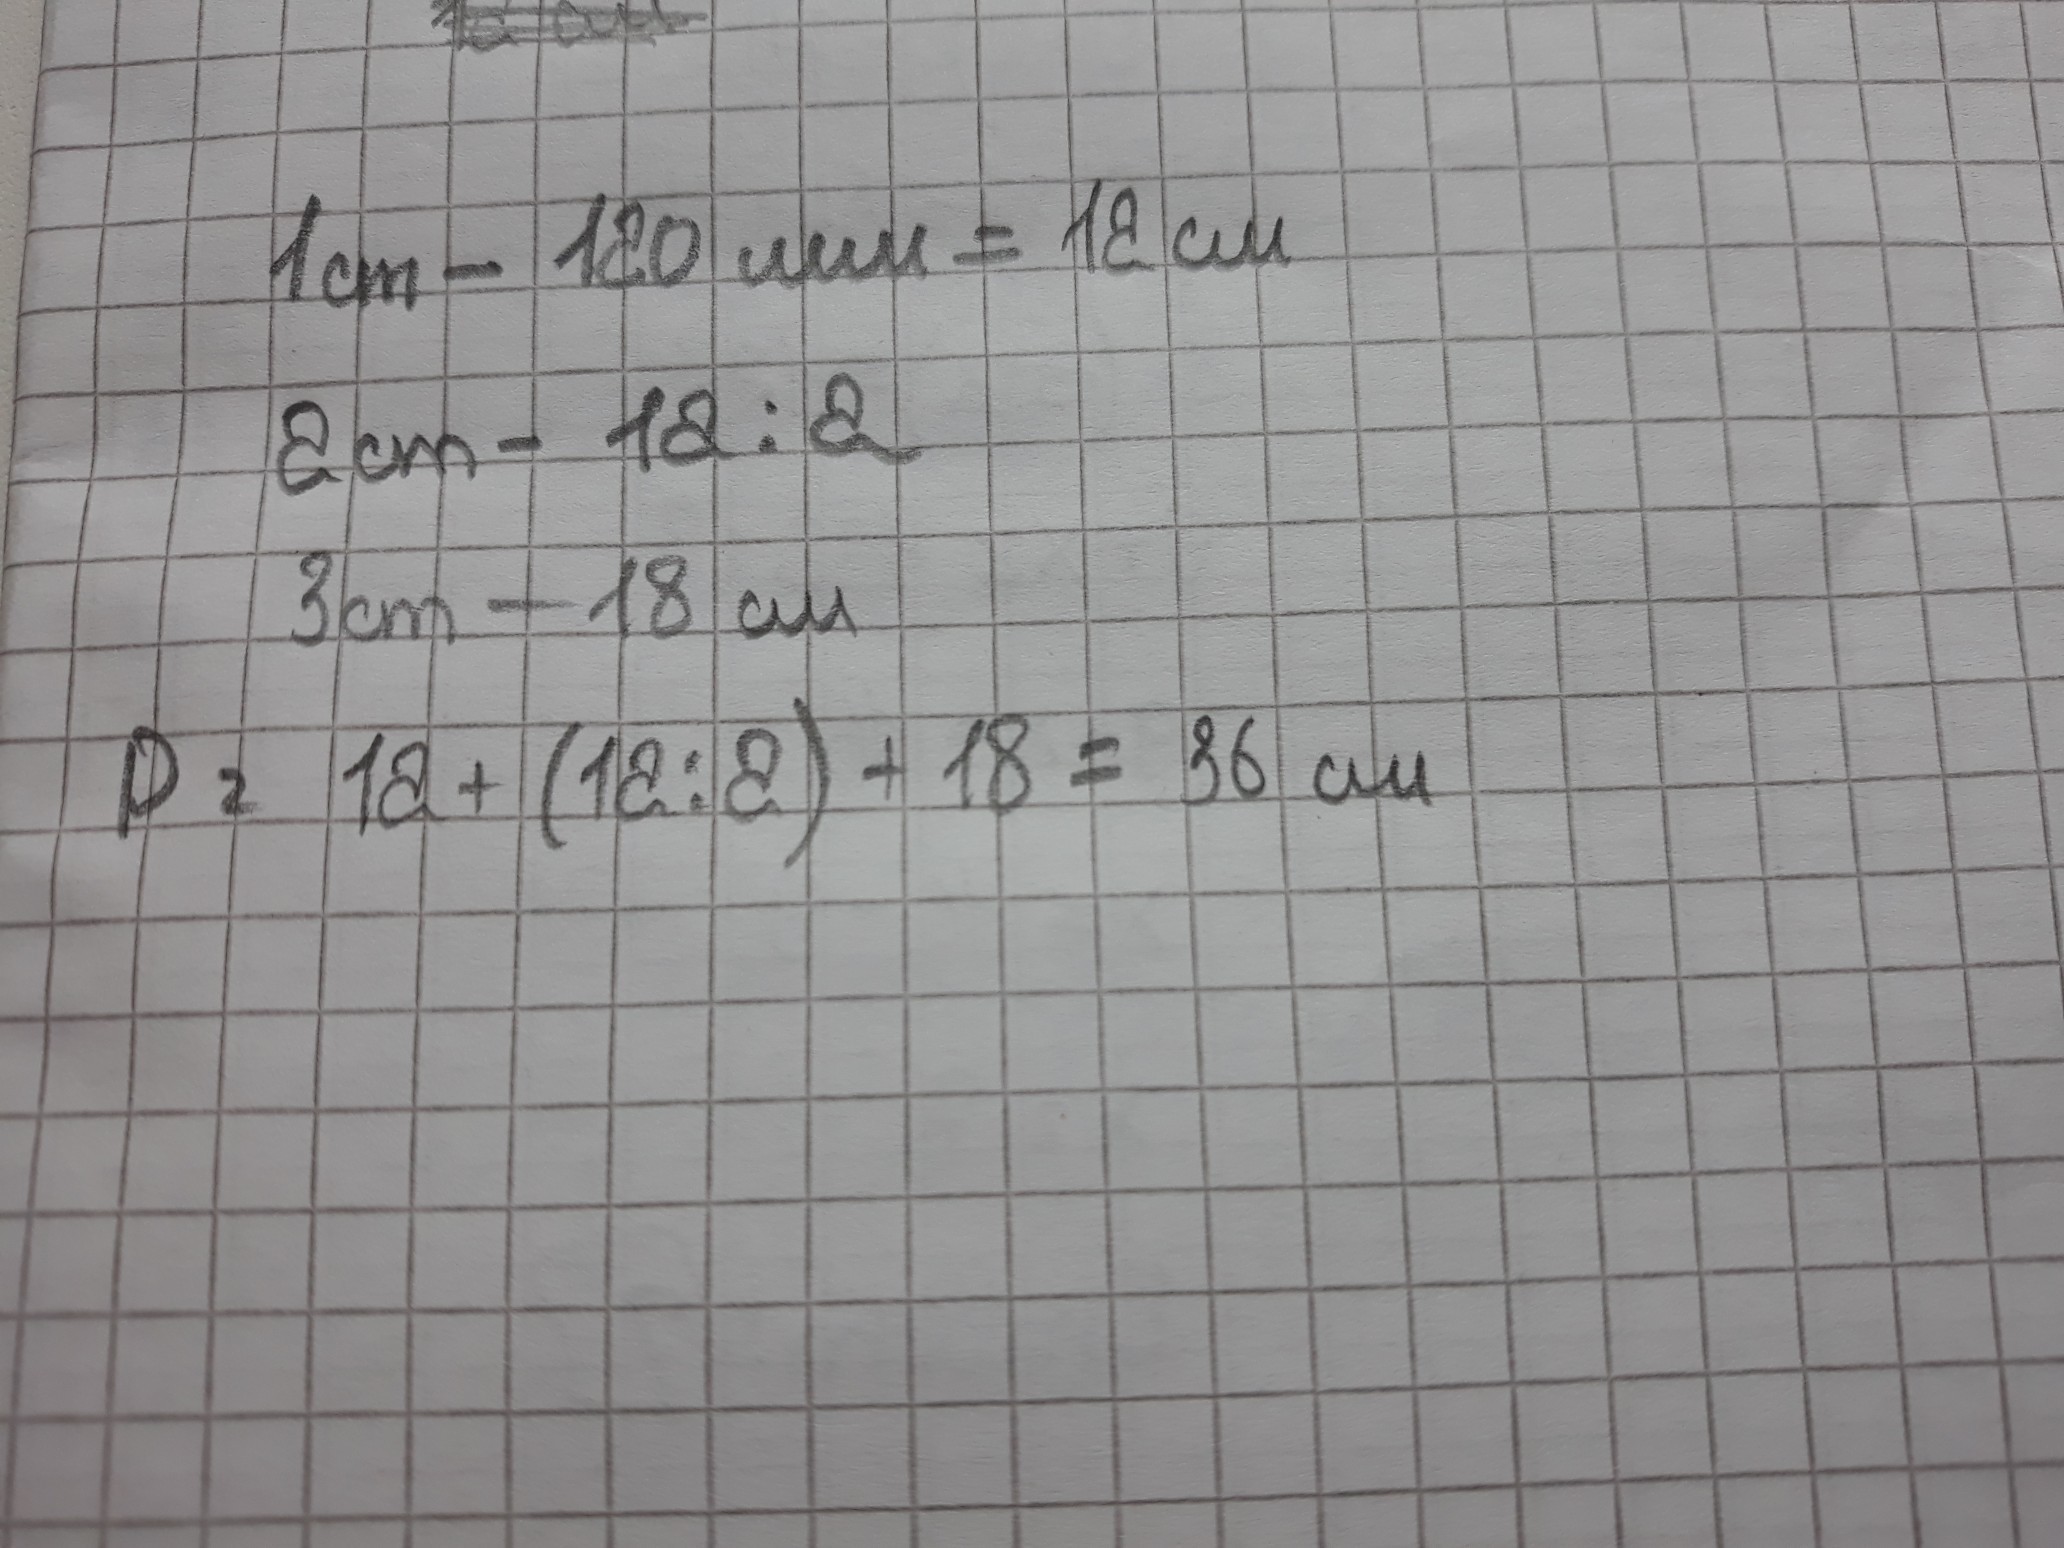 1 ст - 120 мм = 12 см
2 ст - 12 : 2
3 ст - 18 см
P = 12 + (12 : 2) + 18 = 36 см